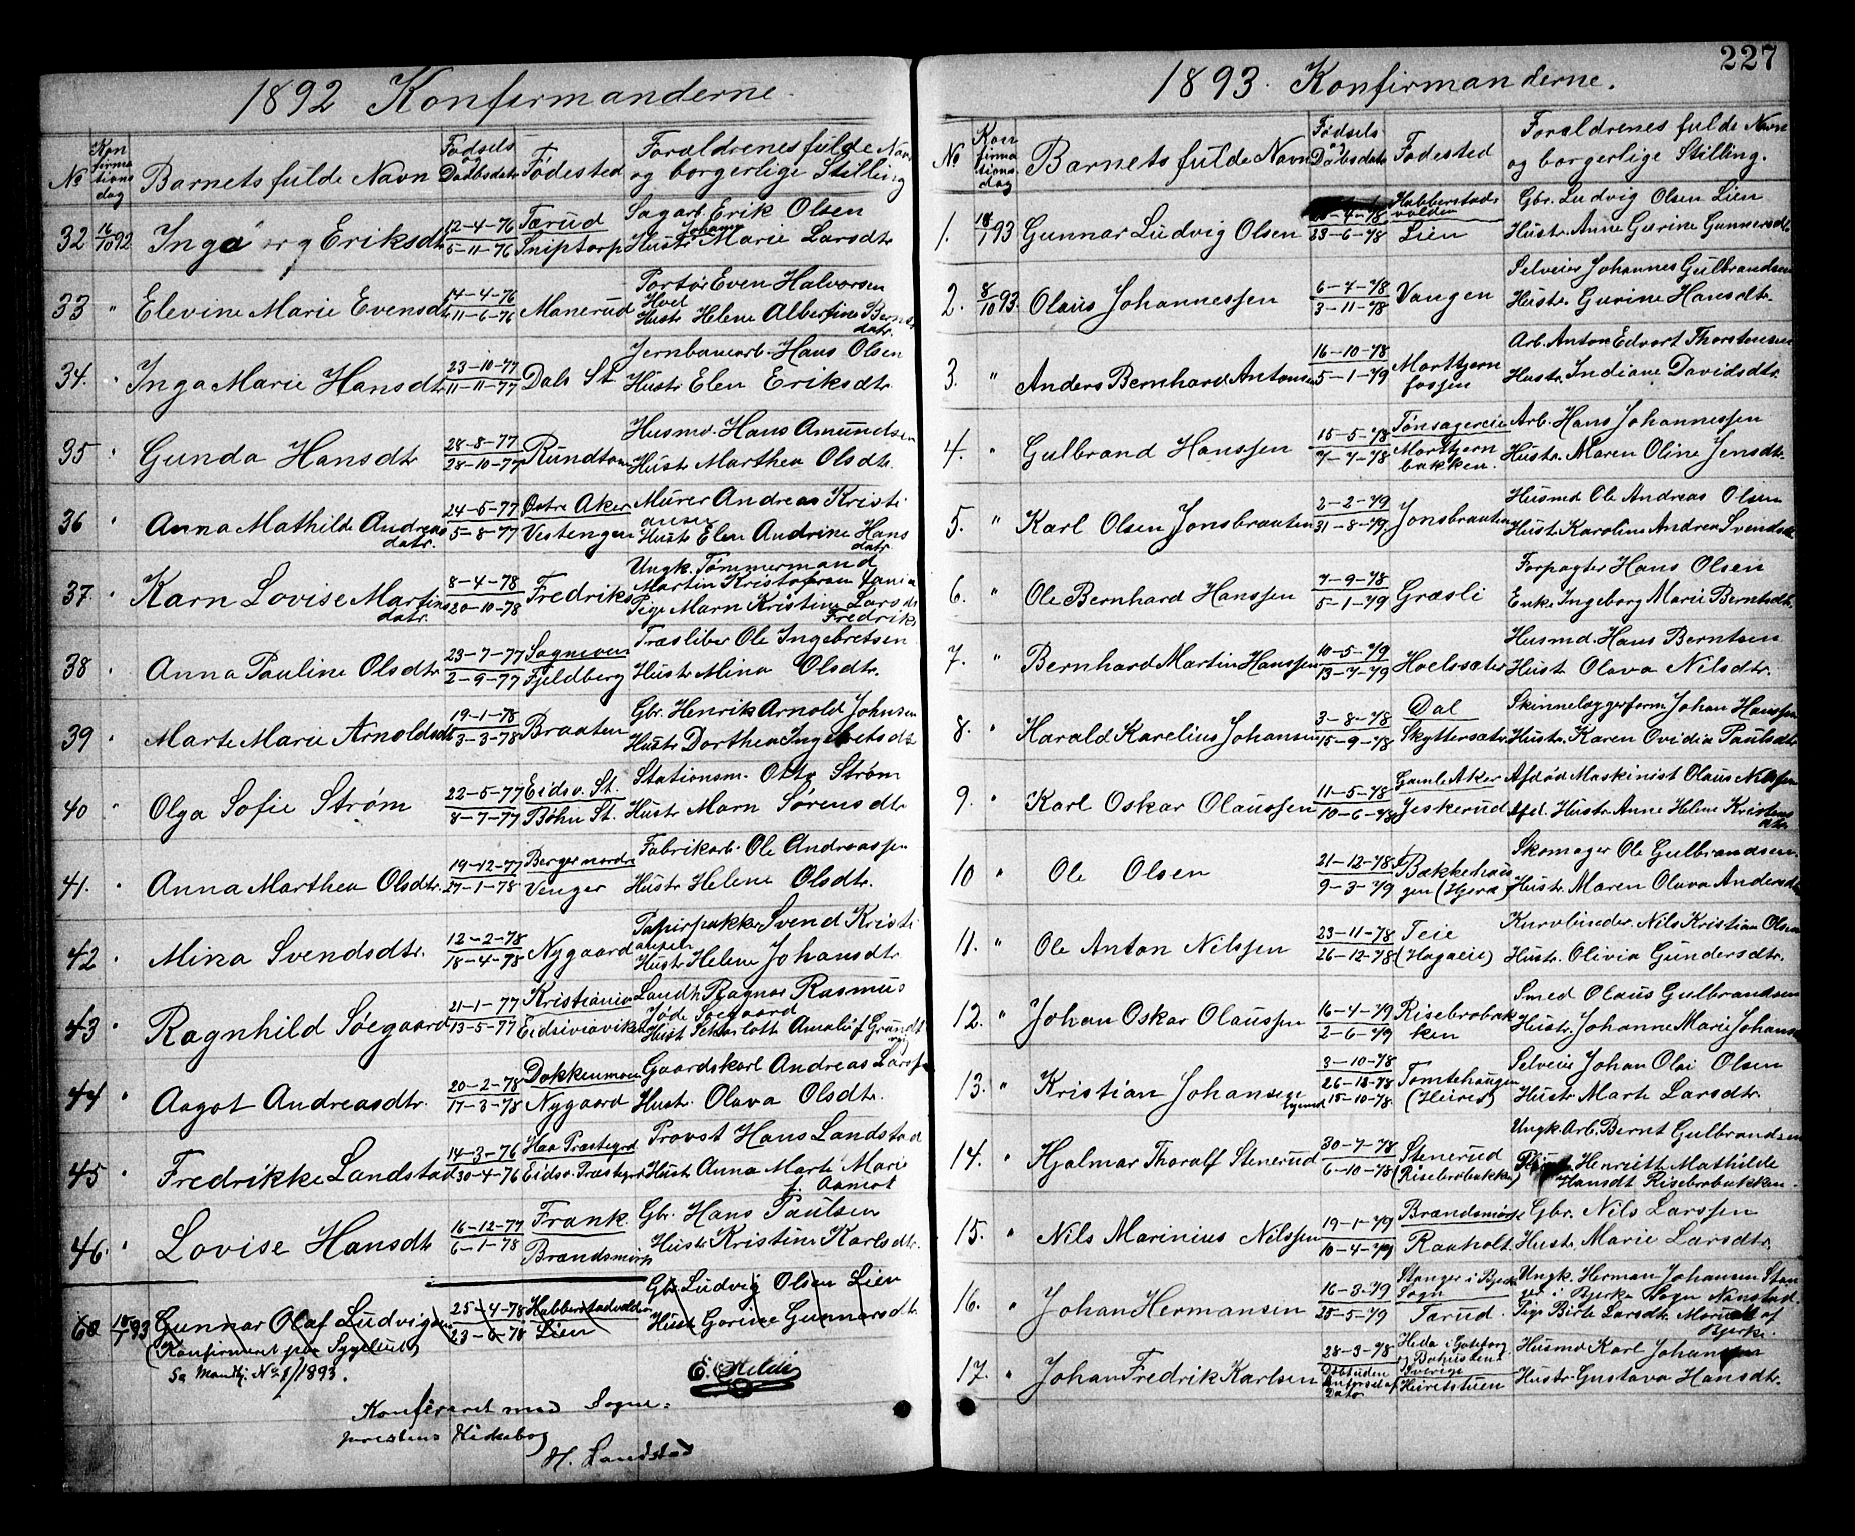 227
1892 Konfirmanderne.
No Konfirmationsdag Barnets fulde Navn Fødsels og Daabsdato Fødested Forældrenes fulde Navn og borgerlige Stilling
32 16/10 92 Ingeborg Eriksdtr 12-4-76 Tærud Sagarb. Erik Olsen
5-11-76 Sniptorp Hustr Johanne Marie Larsdtr
33 " Elevine Marie Evensdtr 14-4-76 Manerud Portør Even Halvorsen Hoel
11-6-76 Hustr Helene Albertine Bernts
datr.
34. " Inga Marie Hansdtr 23-10-77 Dals St. Jernbanearb. Hans Olsen
11-11-77 Hustr Elen Eriksdtr.
35 " Gunda Hansdtr 28-8-77 Rundtom Husmd. Hans Amundsen
28-10-77 Hustr Marthea Olsdtr.
36 " Anna Mathilde Andreas 24-5-77 Østre Aker Murer Andreas Kristi
datr. 5-8-77 Vestengen ansen
Hustr Elen Andrine Hans
datr.
37. " Karn Lovise Martins 8-4-78 Fredriks Ungk. Tømmermand
datr. 20-10-78 Martin Kristofersen
Pige Marn Kristine Larsdt
Fredriks
38 " Anna Pauline Olsdtr 23-7-77 Sagneven Træsliber Ole Ingebretsen
2-9-77 Fjeldberg Hustr Mina Olsdtr.
39 " Marte Marie Arnoldsdtr 19-1-78 Braaten Gbr. Henrik Arnold Johnsen
3-3-78 Hustr Dorthea Ingebretsdtr
40 " Olga Sofie Strøm 22-5-77 Eidsv. St. Stationsm. Otto Strøm
8-7-77 Bøhn St. Hustr Marn Sørensdtr
41. " Anna Marthea Olsdtr. 19-12-77 Berger nordre Fabrikarb. Ole Andreassen
27-1-78 Venger Hustr Helene Olsdtr.
42 " Mina Svendsdtr. 12-2-78 Nygaard Papirpakker Svend Kristi
18-4-78 ansen
Hustr Helene Johansdtr
43 " Ragnhild Søegaard 21-1-77 Kristiania Landh. Ragnar Rasmus
13-5-77 Eidsiviaviken Jude Søegaard
Hustr Scharloth Amalie f. Grundt
44 " Aagot Andreasdtr. 20-2-78 Dokkenmoen Gaardskarl Andreas Larsen
17-3-78 Nygaard Hustr. Olava Olsdtr.
45 " Fredrikke Landstad 14-3-76 Haa Præstegrd Provst Hans Landstad
30-4-76 Eidsv. Præstegrd Hustr Anna Marte Marie
f. Aamot
46. " Lovise Hansdtr 16-12-77 Frank. Gbr. Hans Paulsen
6-1-78 Brandsmörp Hustr Kristine Karlsdtr.
60 18/7 93 Gunnar Olaf Ludvigsen 25-4-78 Habberstadvolden Gbr Ludvig Olsen Lien
(Konfirmeret paa Sygeleiet) 23-6-78 Lien Hustr Gorine Gunnarsdtr.
Se Mandkj. No 1/1893.
E. Kilde
Konfereret med Sogne-
præstens Kirkebog
H. Landstad
1893. Konfirmanderne.
No Konfirmationsdag Barnets fulde Navn Fødsels og Daabsdato Fødested Forældrenes fulde Navn
og borgerlige Stilling.
1. 18/7 93 Gunnar Ludvig Olsen 25-4-78 Habberstadvolden Gbr. Ludvig Olsen Lien
23-6-78 Lien Hustr. Anne Gurine Gunnersdtr
2. 8/10 93. Olaus Johannessen 6-7-78 Vangen Selveier Johannes Gulbrandsen
3-11-78 Hustr. Gurine Hansdtr
3. " Anders Bernhard Antonsen 16-10-78 Morttjern Arb. Anton Edvart Thorstensen
5-1-79 fossen Hustr. Indiane Davidsdtr.
4. " Gulbrand Hanssen 15-5-78 Tønsagereie Arb. Hans Johannessen
7-7-78 Morttjern Hustr. Maren Oline Jensdtr.
bakken.
5. " Karl Olsen Jonsbraaten 2-2-79 Jonsbraaten Husmd Ole Andreas Olsen
31-8-79 Hustr. Karoline Andrea Svendsdtr
6. " Ole Bernhard Hanssen 7-9-78 Græsli Forpagter Hans Olsen
5-1-79 Enke Ingeborg Marie Berntsdtr.
7. " Bernhard Martin Hanssen 10-5-79 Hoelssæter Husmd Hans Berntsen
13-7-79 Hustr Olava Nilsdtr.
8. " Harald Karelius Johansen 3-8-78 Dal Skinnelæggerform Johan Hanssen
15-9-78 Skyttersætr. Hustr. Karen Ovidia Paulsdtr
9. " Karl Oskar Olaussen 11-5-78 Gamle Aker Afdød Maskinist Olaus Nilssen
10-6-78 Jeskerud Afd. Hustr Anne Helene Kristens
dtr
10 " Ole Olsen 21-12-78 Bækkehau Skomager Ole Gulbrandsen.
9-3-79 gen (Hjera) Hustr. Maren Olava Andersdtr
11. " Ole Anton Nilssen 23-11-78 Teie Kurvbinder. Nils Kristian Olsen
26-12-78 (Hagaeie) Hustr. Olivia Gundersdtr.
12. " Johan Oskar Olaussen 16-4-79 Risebrobak Smed Olaus Gulbrandsen
2-6-79 ken Hustr. Johanne Marie Johans
13. " Kristian Johansen 3-10-78 Tomtehaugen Selveier Johan Olai Olsen
26-12-78 (Heier) Hustr Marte Larsdtr.
hjemd 15-10-78.
14. " Hjalmar Thoralf Stenerud 30-7-78 Stenerud Ungk. Arb. Bernt Gulbrandsen
6-10-78 (Risebrobakken) Henriette Mathilde
Hansdt Risebrobakken.
15. " Nils Marinius Nilssen 19-1-79 Brandsmörp Gbr. Nils Larssen
10-4-79 Raaholt. Hustr. Marie Larsdtr.
16. " Johan Hermansen 16-3-79 Stanger i Bjerke Ungk. Herman Johansen Stan
Sogn ger i Bjerke Sogn Nanstad.
25-5-79 Tærud. Pige Birte Larsdtr. af
Bjerke.
17. " Johan Fredrik Karlsen 28-3-78 Heda i Gøteborg Husmd Karl Johansen
Døbt uden og Bohuslens
Anførsel af Sverige Hustr. Gustava Hansdtr.
Dato Heiretstuen